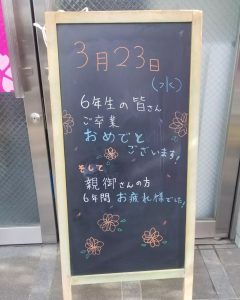 3月23日
(水)
6年生の皆さん
ご卒業
おめでとう
ございます!
そして
親御さんの方
6年間お疲れ様でした!